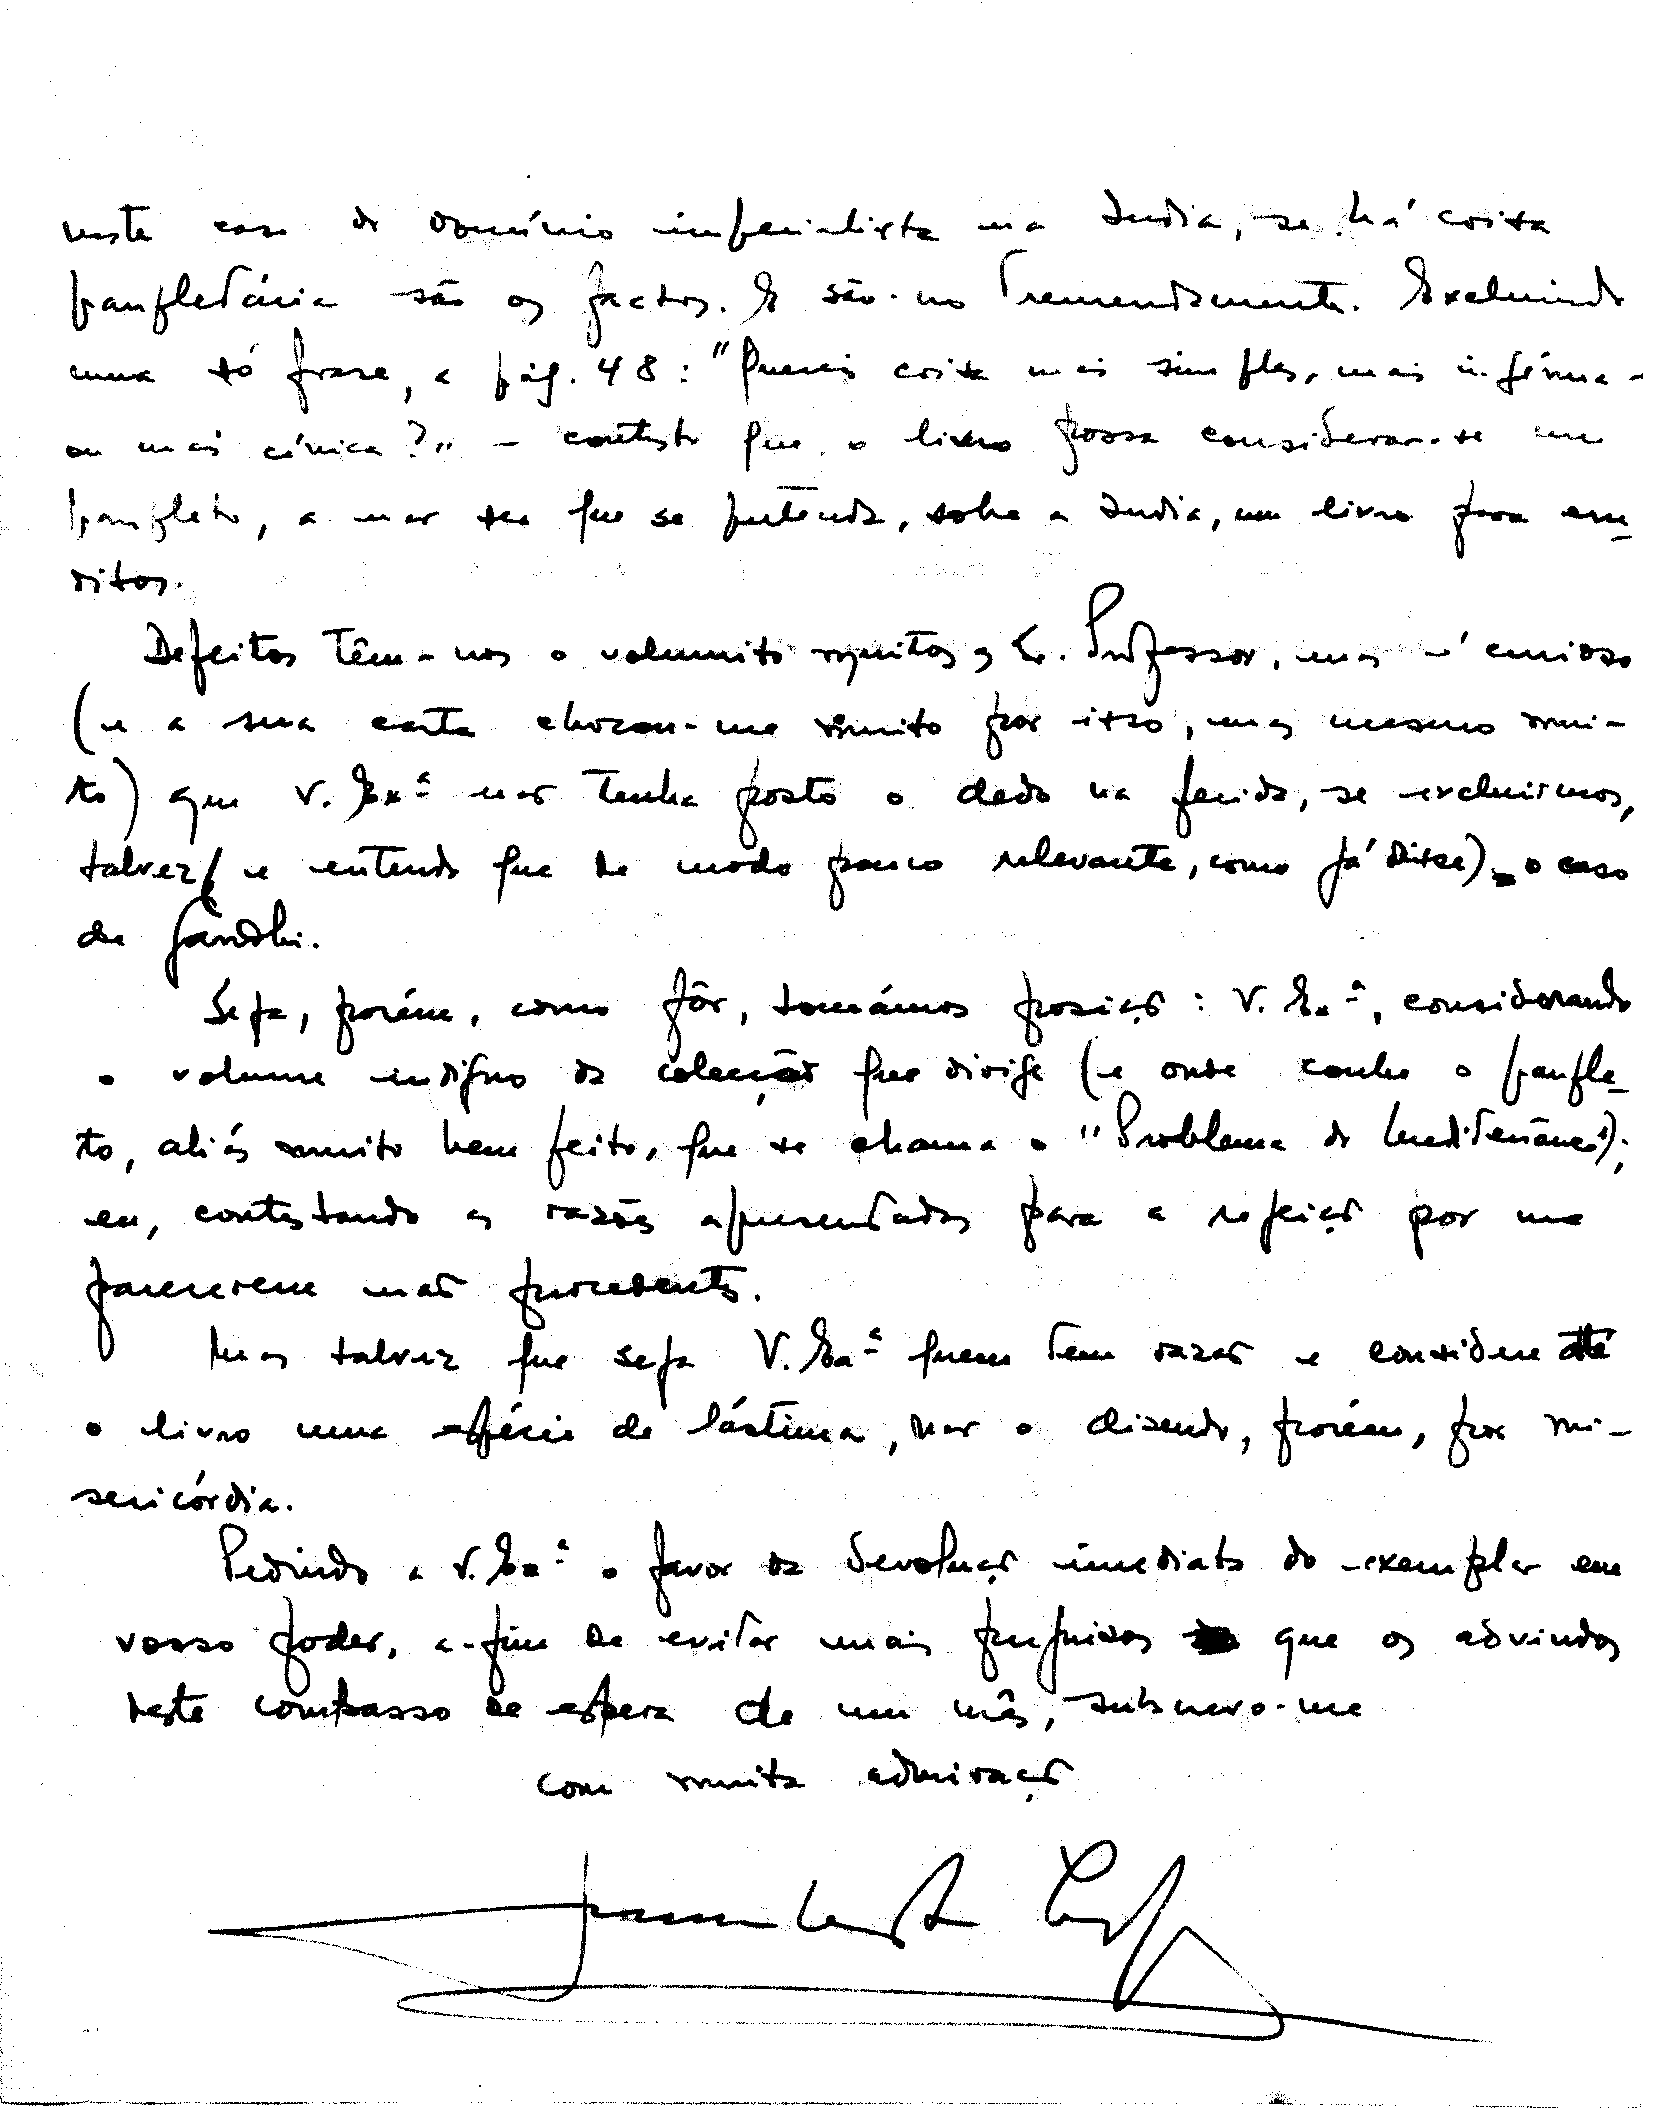 neste caso do domínio imperialista na India, se há coisa
panfletária são os factos. E são-no tremendamente. Excluindo
uma só frase, a pág. 48: "Quereis coisa mais simples, mais infâme
ou mais cínica?" - contesto que o livro possa considerar-se um
panfleto, a não ser que se pretenda, sobre a India, um livro para eru-
ditos.
Defeitos têm-nos o volumito muitos, Sr. Professor, mas é curioso
(e a sua carta chocou-me muito por isso, mas mesmo mui-
to) que V. Exª não tenha posto o dedo na ferida, se excluirmos,
talvez (e entendo que de modo pouco relevante, como já disse) o caso
de Gandhi.
Seja, porém, como fôr, tomámos posição: V. Exª, considerando
o volume indigno da colecção que dirige (e onde coube o panfle-
to, aliás muito bem feito, que se chama o "Problema do Mediterrâneo");
eu, contestando as razões apresentadas para a rejeição por me
parecerem não procedentes.
Mas talvez que seja V. Exª quem tem razão e considere até
o livro uma espécie de lástima, não o dizendo, porém, por mi-
sericórdia.
Pedindo a V. Exª o favor da devolução imediata do exemplar em
vosso poder, a-fim de evitar mais prejuizos que os advindos
neste compasso de espera de um mês, subscrevo-me
com muita admiração